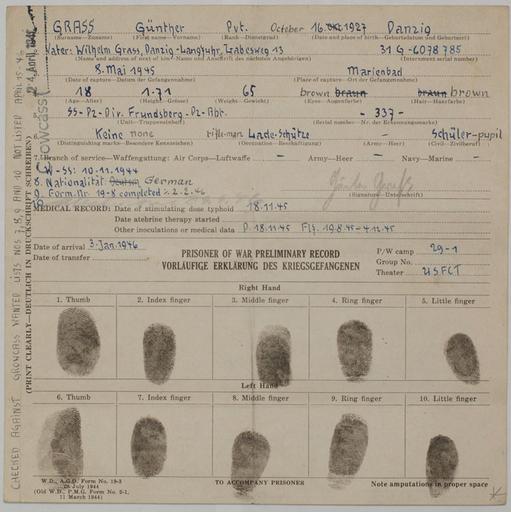 GRASS Günther Pvt. October 16. Okt. 1927 Danzig
(Surname—Zuname) (First name—Vorname) (Rank—Dienstgrad) (Date and place of birth—Geburtsdatum und Geburtsort)
Vater: Wilhelm Grass, Danzig-Langfuhr, Labesweg 13 31 G-6078785
(Name and address of next of kin—Name und Anschrift des nächsten Angehörigen) (Internment serial number)
8. Mai 1945 Marienbad
(Date of capture—Datum der Gefangennahme) (Place of capture—Ort der Gefangennahme)
18 1.71 65 brown braun braun brown
(Age—Alter) (Height—Grösse) (Weight—Gewicht) (Eyes—Augenfarbe) (Hair—Haarfarbe)
SS-Pz-Div. Frundsberg-Pz-Abt. - 337 -
(Unit—Truppeneinheit) (Serial number—Nr. der Erkennungsmarke)
Keine none rifle-man Lade-Schütze Schüler-pupil
(Distinguishing marks—Besondere Kennzeichen) (Occupation—Beschäftigung) (Army—Heer) (Civil—Zivilberuf)
7. Branch of service—Waffengattung: Air Corps—Luftwaffe Army—Heer Navy—Marine
W-SS: 10.11.1944
8. Nationalität: Deutsch German Günter Graß
9. Form.-Nr. 19-8 completed 2.2.46 (Signature—Unterschrift)
10
MEDICAL RECORD: Date of stimulating dose typhoid 18.11.45
Date atebrine therapy started
Other inoculations or medical data D 18.11.45 Flf. 19.8.45-4.12.45
Date of arrival 3. Jan. 1946
Date of transfer
PRISONER OF WAR PRELIMINARY RECORD
VORLÄUFIGE ERKLÄRUNG DES KRIEGSGEFANGENEN
P/W camp 29-1
Group No.
Theater USFET
Right Hand
1. Thumb 2. Index finger 3. Middle finger 4. Ring finger 5. Little finger
Left Hand
6. Thumb 7. Index finger 8. Middle finger 9. Ring finger 10. Little finger
W.D., A.G.O. Form No. 19-3
(Old W.D., P.M.G. Form No. 2-1,
11 March 1944)
TO ACCOMPANY PRISONER
Note amputations in proper space
(PRINT CLEARLY—DEUTLICH IN DRUCKSCHRIFT SCHREIBEN)
CHECKED AGAINST CROWCASS WANTED LISTS NOS 7, 8, 9 APRIL 10 NOT LISTED APR 15-46